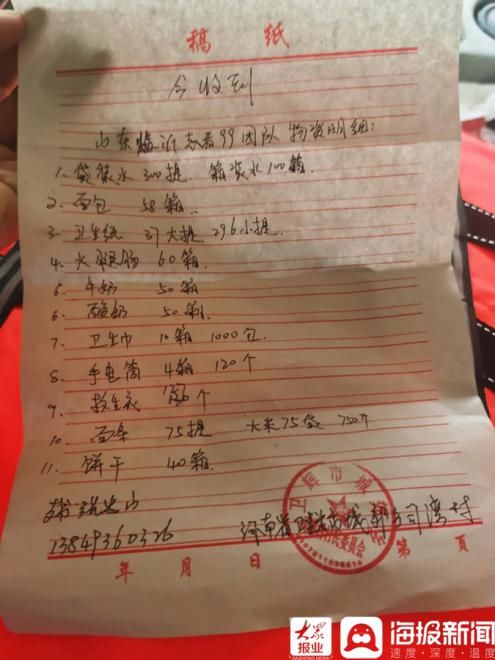 稿 纸
今收到
山东临沂志者99团队 物资明细：
1、袋装水 300提、箱装水100箱、
2、面包 58箱、
3、卫生纸 37大提、296小提、
4、火腿肠 60箱、
5、牛奶 50箱
6、酸奶 50箱、
7、卫生巾 10箱 1000包、
8、手电筒 4箱 120个
9、救生衣 个
10、面条 75提 大米75袋 750斤
11、饼干 40箱、
13849360326 河南省卫辉市城郊乡司湾村
卫辉市城
村民委员会
年 月 日 第 页
大众报业
海报新闻
速度·深度·温度